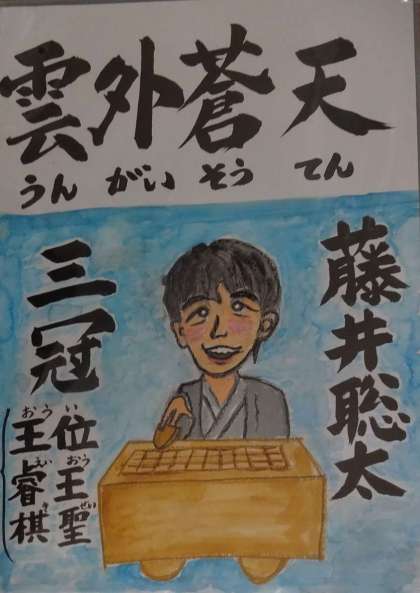 雲外蒼天
うん がい そう てん
藤井聡太
三冠
おう い
王位
えい おう
睿王
き せい
棋聖